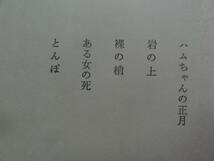 ハムちゃんの正月
岩の上
裸の樹
ある女の死
とんぼ